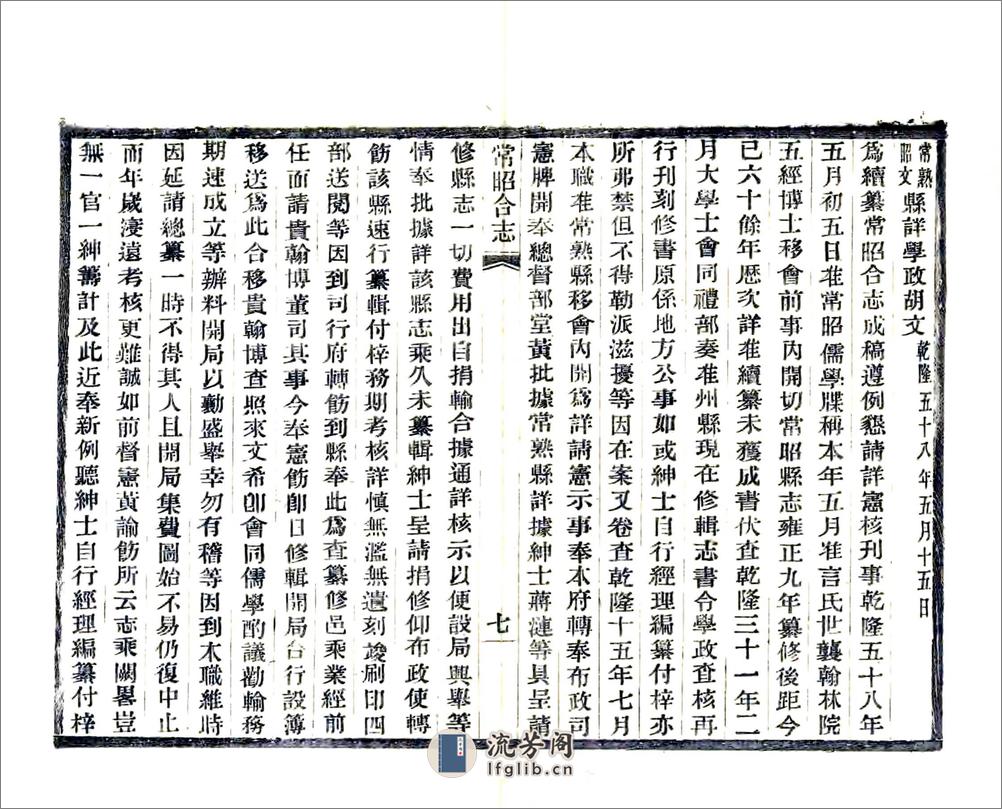 常熟昭文縣詳學政胡文乾隆五十八年五月十五日
爲續纂常昭合志成稿遵例懇請詳憲核刊事乾隆五十八年
五月初五日准常昭儒學牒稱本年五月准言氏世襲翰林院
五經博士移會前事內開切常昭縣志雍正九年纂修後距今
已六十餘年歷次詳准續纂未獲成書伏查乾隆三十一年二
月大學士會同禮部奏准州縣現在修輯志書令學政查核再
行刊刻修書原係地方公事如或紳士自行經理編纂付梓亦
所弗禁但不得勒派滋擾等因在案又卷查乾隆十五年七月
本職准常熟縣移會內開爲詳請憲示事奉本府轉奉布政司
憲牌開奉總督部堂黃批據常熟縣詳據紳士蔣漣等具呈請
常昭合志
七
修縣志一切費用出自捐輸合據通詳核示以便設局興舉等
情奉批據詳該縣志乘久未纂輯紳士呈請捐修仰布政使轉
飭該縣速行纂輯付梓務期考核詳慎無濫無遺刻竣刷印四
部送閱等因到司行府轉飭到縣奉此爲查纂修邑乘業經前
任面請貴翰博董司其事今奉憲飭卽日修輯開局台行設簿
移送爲此合移貴翰博查照來文希卽會同儒學酌議勸輸務
期速成立等辦料開局以勷盛舉幸勿有稽等因到本職維時
因延請總纂一時不得其人且開局集費圖始不易仍復中止
而年歲淒遠考核更難誠如前督憲黃諭飭所云志乘闕畧豈
無一官一紳籌計及此近奉新例聽紳士自行經理編纂付梓
流芳阁
lfglib.cn